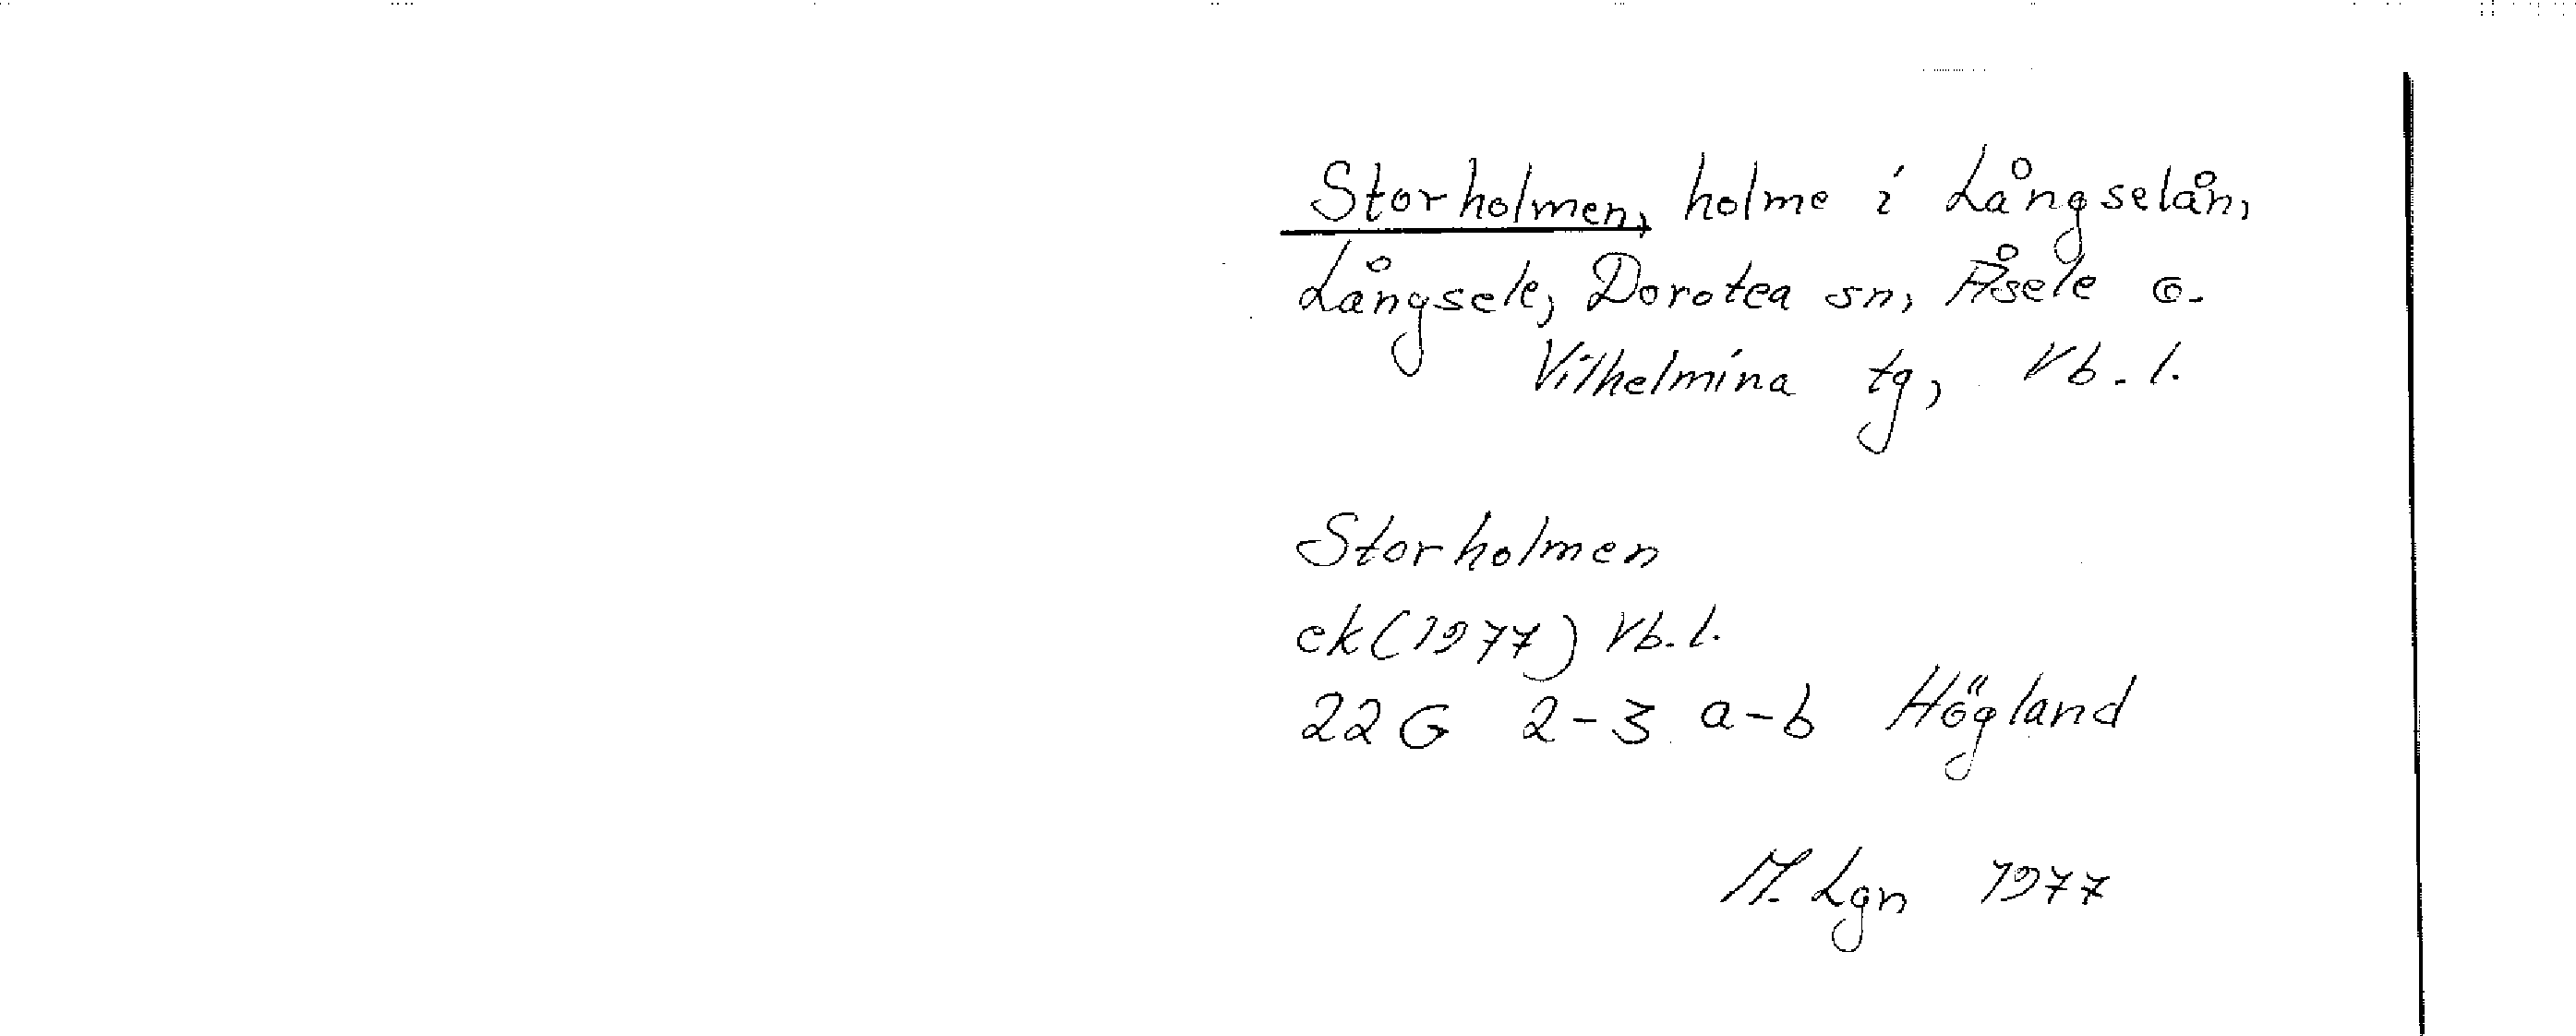 Storholmen, holme i Långselån,
Långsele, Dorotea sn, Åsele o.
Vilhelmina tg, Vb. l.
Storholmen
ek (1977) Vb. l.
22 G 2-3 a-b Högland
M. Lgn 1977